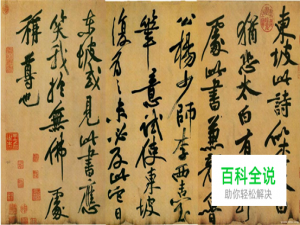 東坡此詩似
猶恐太白有
處此書兼顏魯
公楊少師李西臺
筆意試使東坡
復為之未必及此它日
東坡或見此書應
笑我於無佛處
稱尊也
百科全说
助你轻松解决